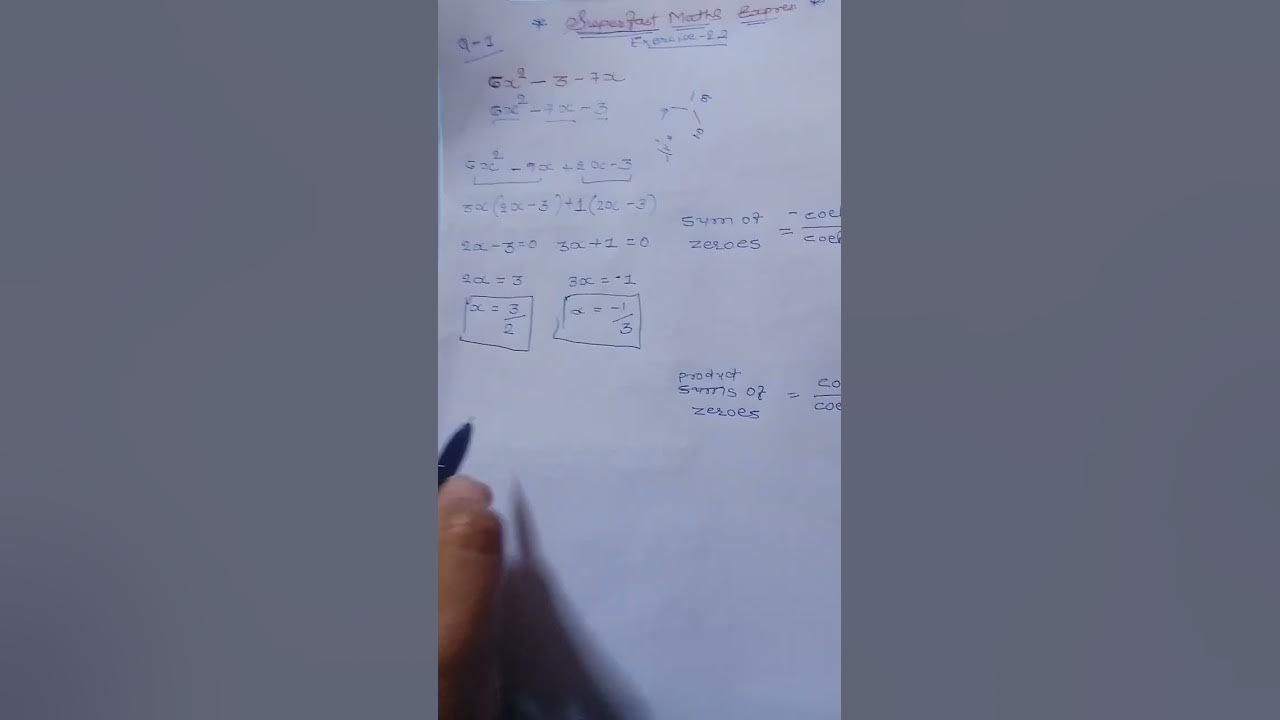 * Superfast Maths Expres *
Exercise-2.2
Q-1
6x² - 3 - 7x
6x² - 7x - 3
18
9
2
6x² - 9x + 2x - 3
3x(2x-3)+1(2x-3)
2x-3=0 3x+1=0
2x = 3 3x = -1
x = 3/2 x = -1/3
Sum of zeroes = -coe/coe
product
sums of zeroes = co/coe